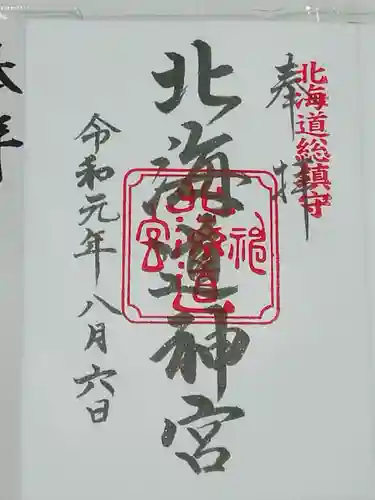 奉拝
北海道総鎮守
北海道神宮
北海道神宮
令和元年八月六日